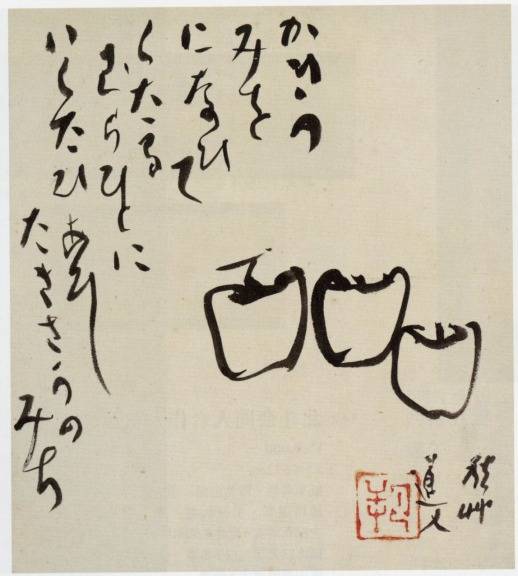 かきの
みを
になひて
くたる
むらひとに
いくたひ
あひし
たきさかの
みち
秋艸
道人